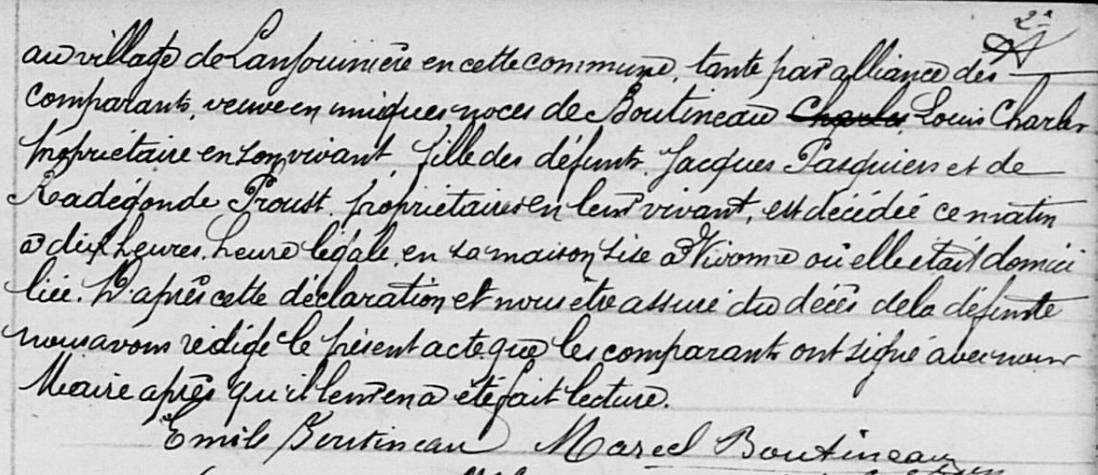 2e
au village de Lanjouinière en cette commune, tante par alliance des
comparants, veuve en uniques noces de Boutineau Charles, Louis Charles
propriétaire en son vivant, fille des défunts Jacques Pasquier et de
Radégonde Proust, propriétaires en leur vivant, est décédée ce matin
à dix heures, heure légale, en sa maison sise à Vivonne où elle était domici
liée. D'après cette déclaration et nous être assuré du décès de la défunte
nous avons rédigé le présent acte que les comparants ont signé avec nous
Maire après qu'il leur en a été fait lecture.
Emile Boutineau Marcel Boutineau